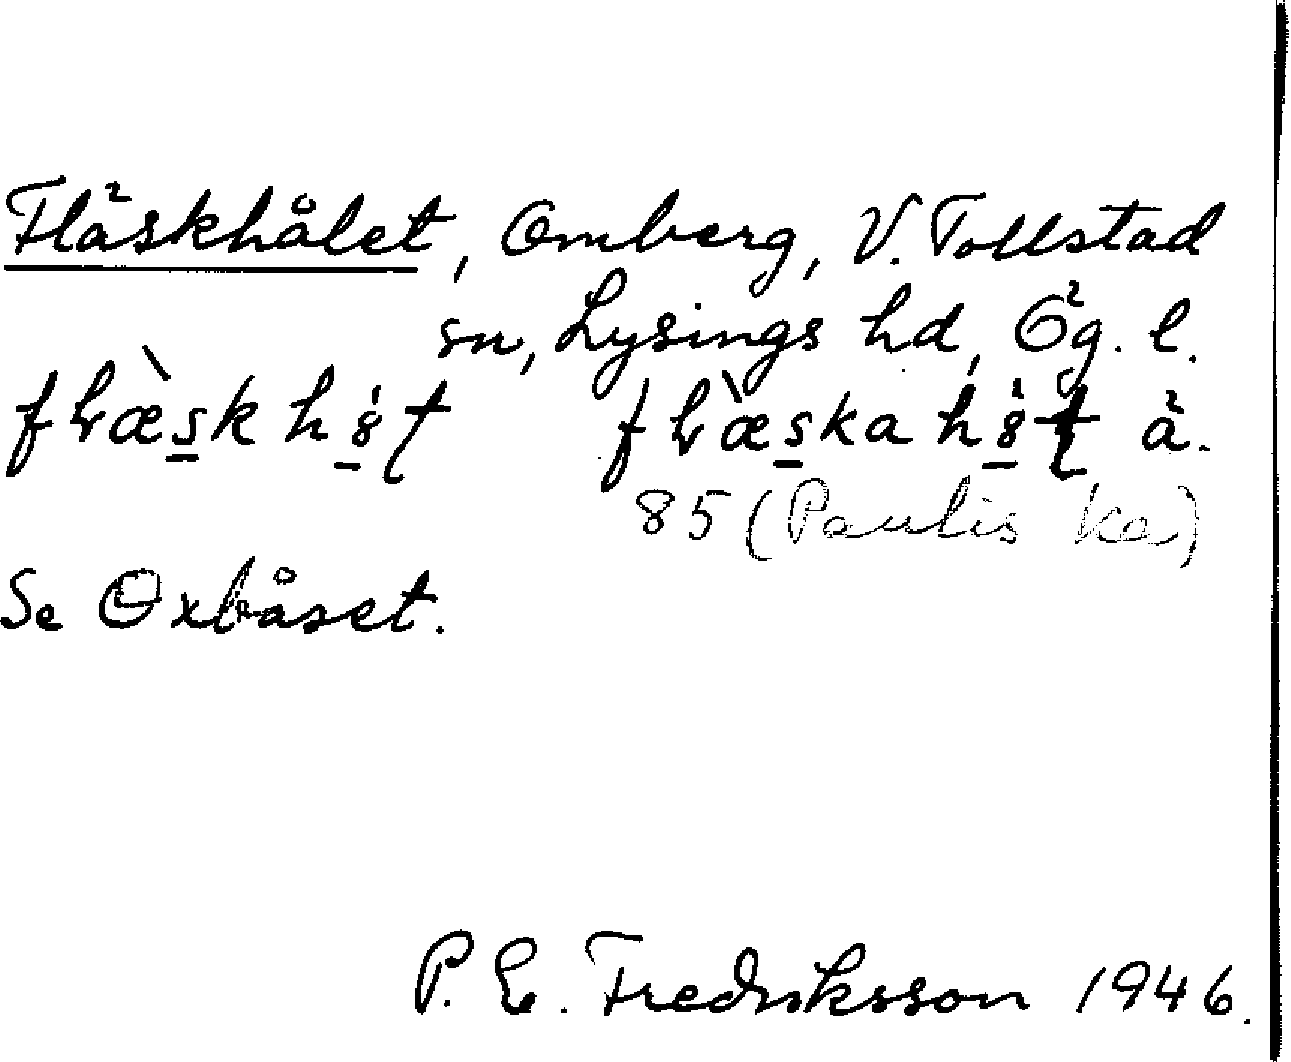 Fläskhålet, Omberg, V. Tollstad
sn, Lysings hd, Ög. l.
å.
85 (Paulis ka)
Se Oxbåset.
P. E. Fredriksson 1946.